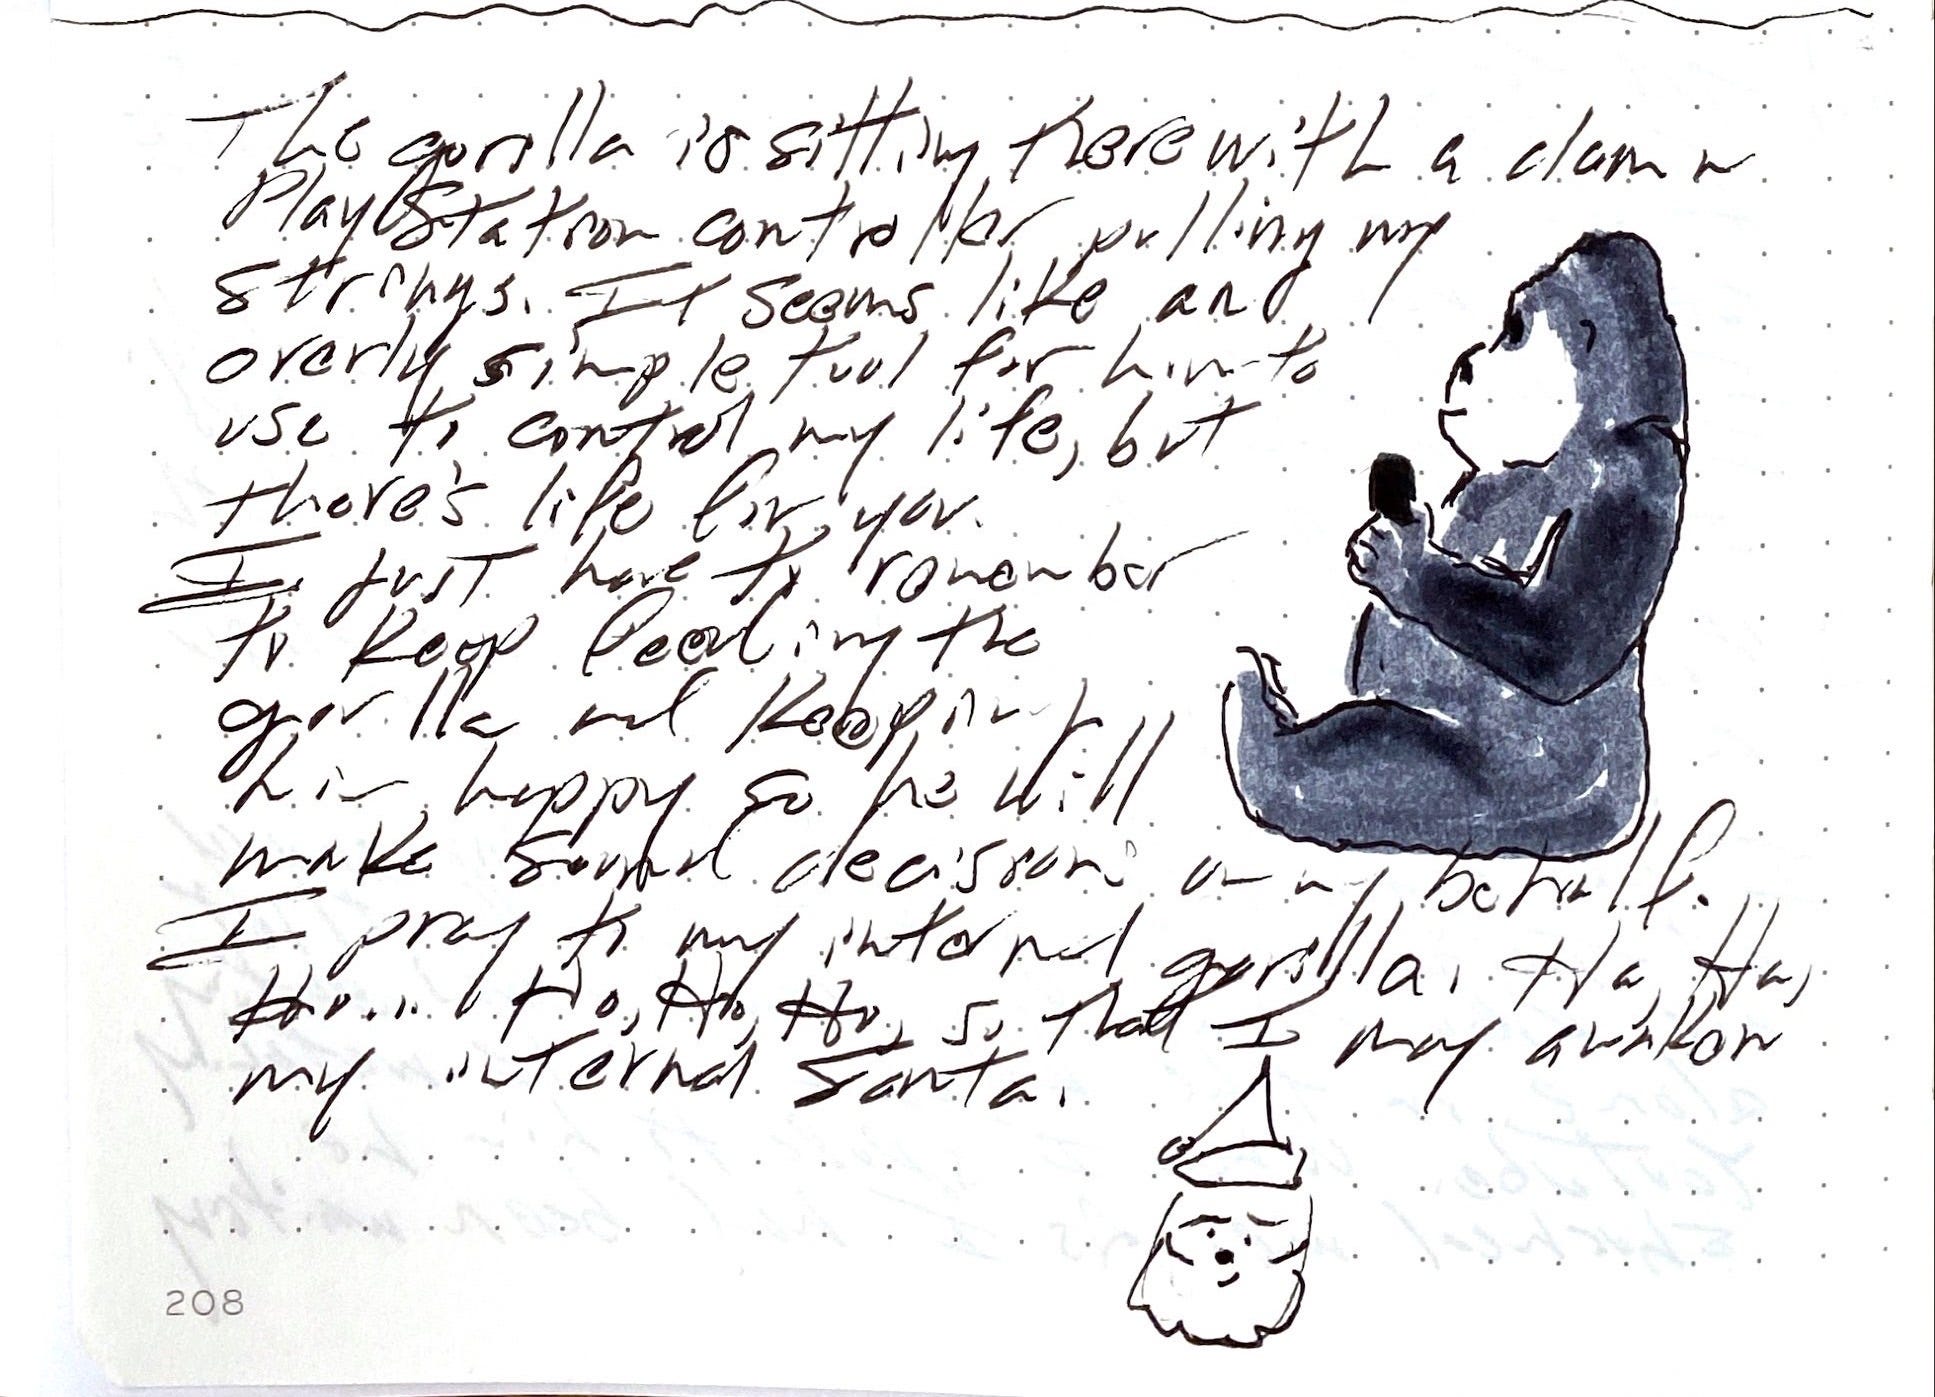 The gorilla is sitting there with a damn
PlayStation controller pulling my
strings. It seems like and
overly simple tool for him to
use to control my life, but
there's life for you.
I just have to remember
to keep feeding the
gorilla and keeping
him happy so he will
make sound decisions on my behalf.
I pray to my internal gorilla. Ha, Ha,
Ha... Ho, Ho, Ho, so that I may awaken
my internal Santa.
208